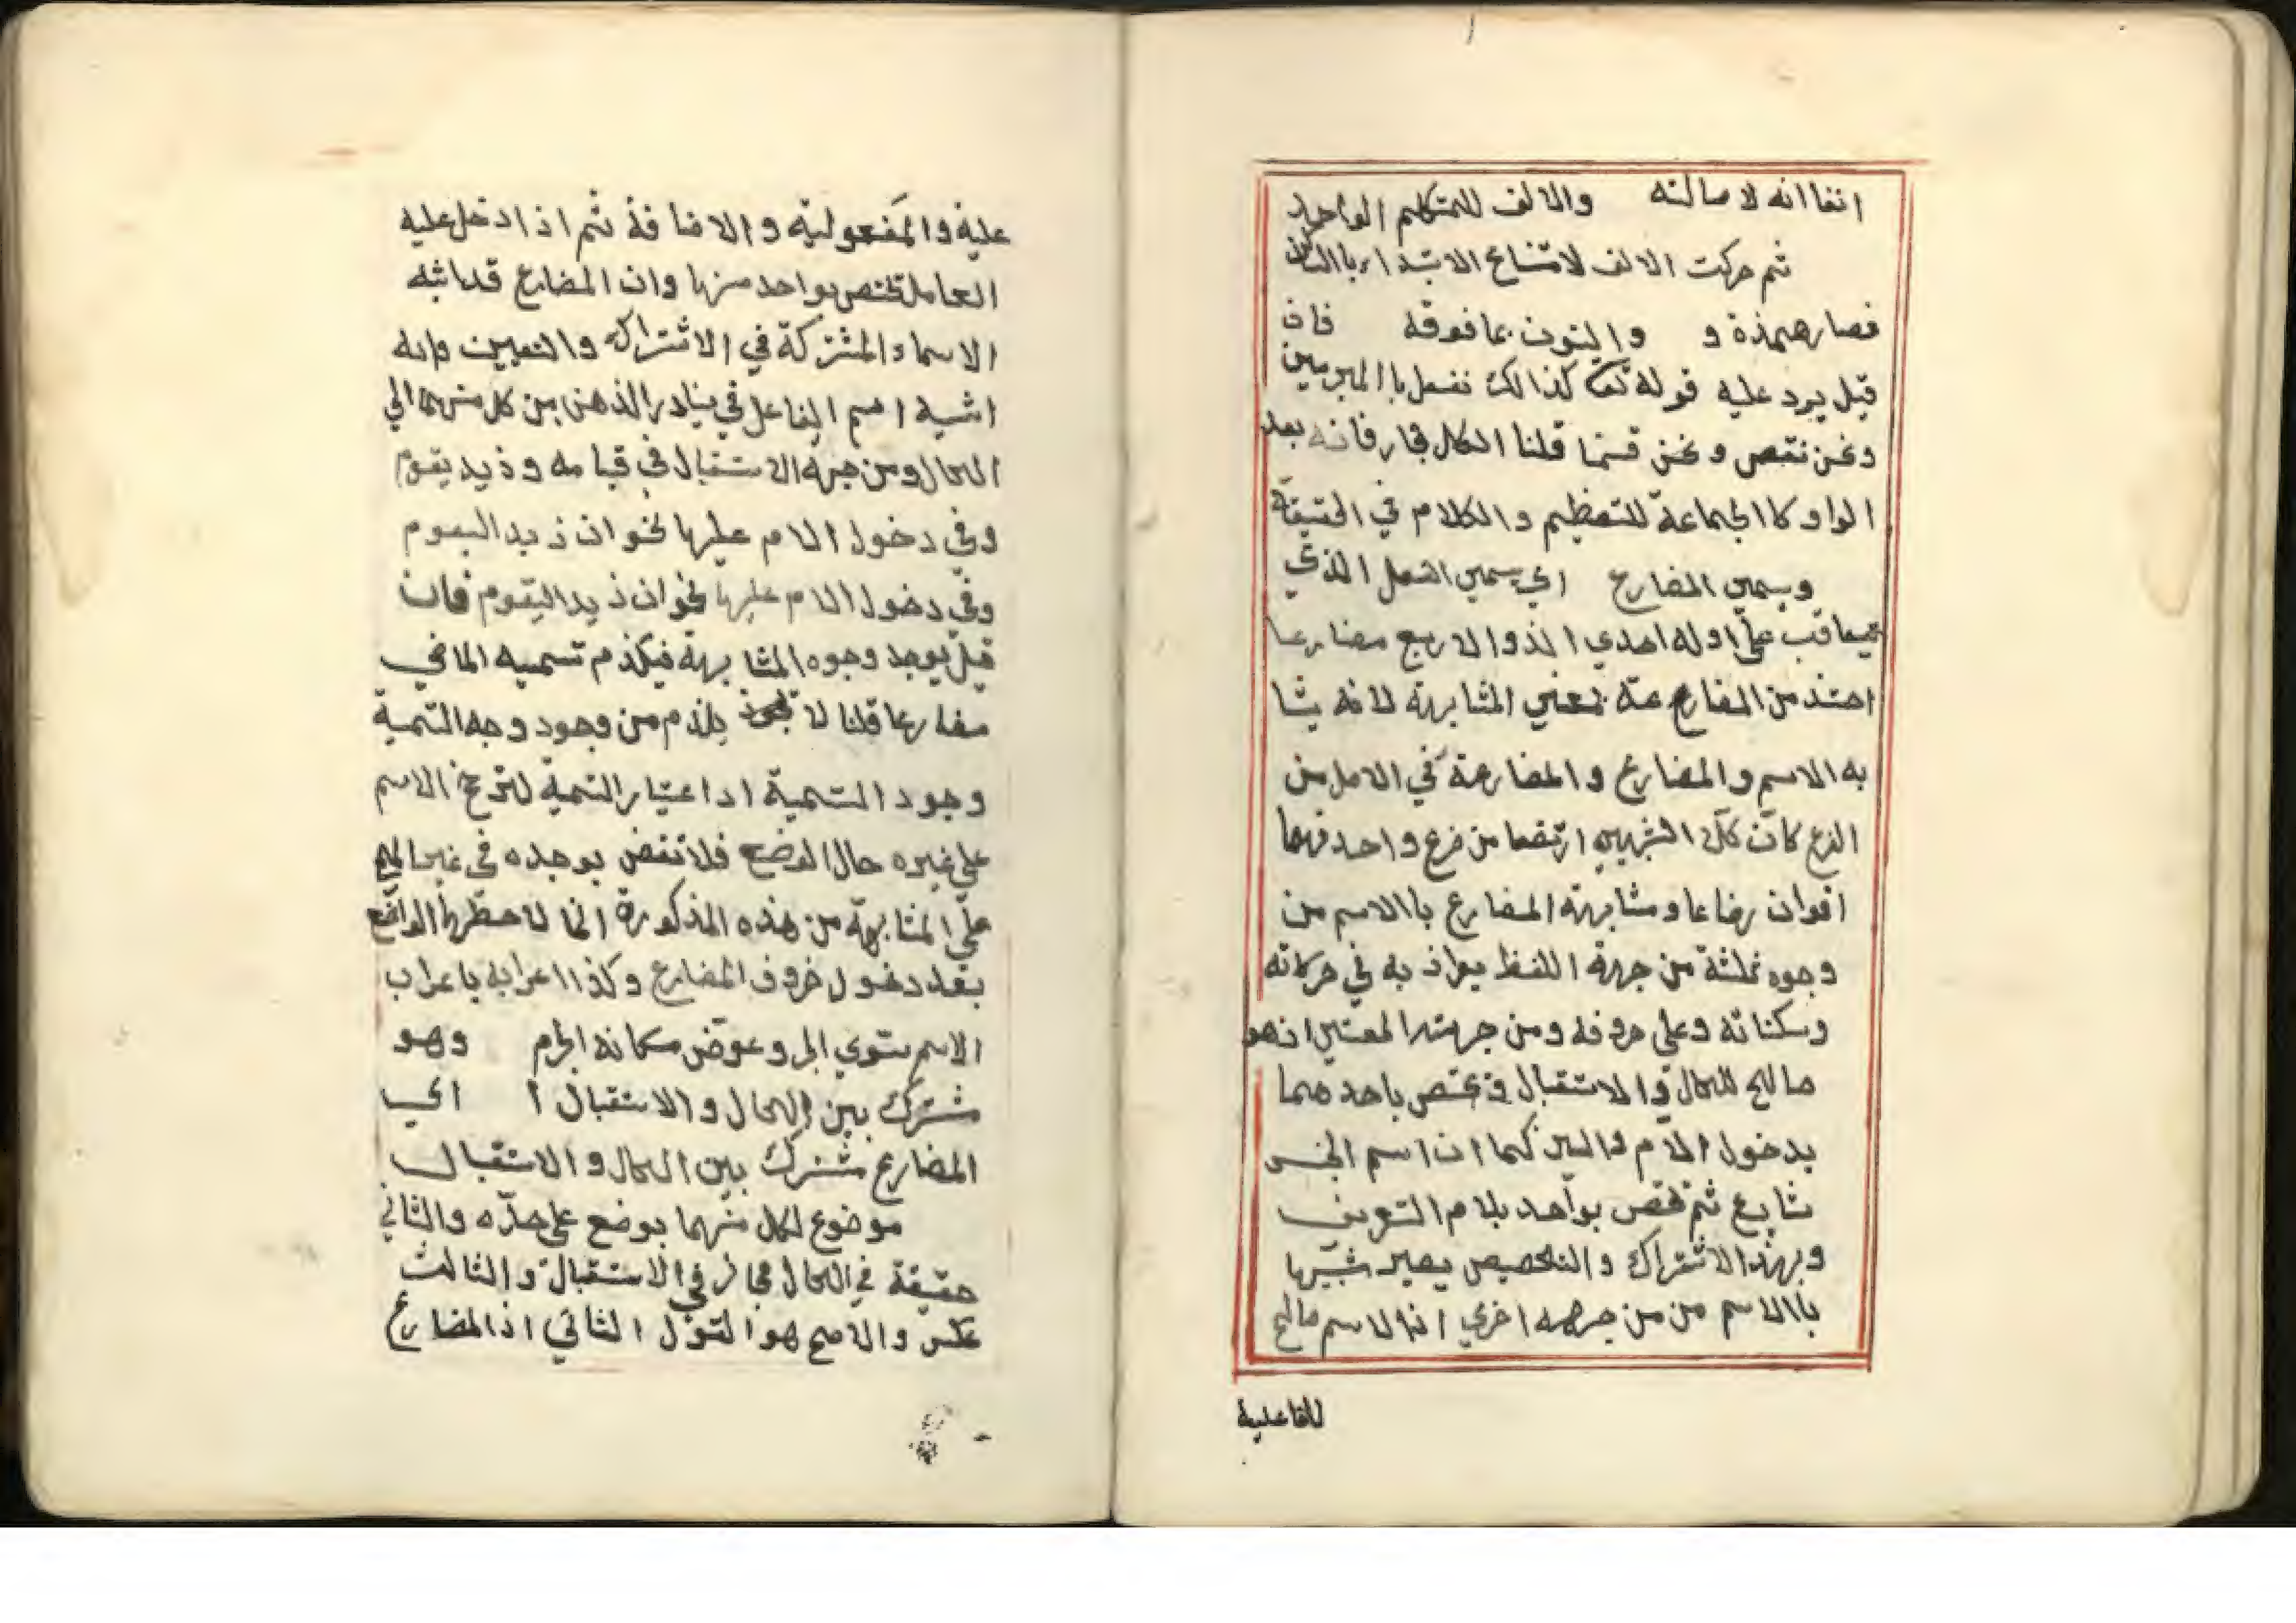 انفا انه لا صالته والالف للمتكلم الواحد
ثم حركت الالف لامتناع الابتداء باالساكن
فصار همذة و والنون بما فوقه فان
قيل يرد عليه قوله تعا كذالك نفعل باالمجرمين
ونحن نقص ونحن قسمنا قلنا الكل مجاز فانه بعد
الواو كاالجماعة للتعظيم والكلام في الحقيقة
ويسمي المضارع اي يسمي الفعل الذي
يتعاقب علي اوله احدي الذوالاربع مضارعا
من المضارعة بمعني المشابهة لانه يشا
به الاسم والمضارع والمضارعة في الاصل من
الذرع كان كلا الشبهين ارتضعا من ضرع واحد فهما
اخوان رضاعا ومشابهة المضارع باالاسم من
وجوه ثلثة من جهة اللفظ يواذ به في حركاته
وسكناته وعلي حروفه ومن جهة المعني انهو
صالح للحال والاستقبال و يختص باحد هما
بدخول الام والسين كما ان اسم الجنس
شايع ثم يختص بواحد بلام التعريف
وبهذا الاشتراك والتخصيص يصير شبيها
باالاسم من من جهه اخري اذا لاسم صالح
للفاعلية
علية والمفعولية والاضافة ثم اذا دخل عليه
العامل تختص بواحد منها وان المضارع قد اشبه
الاسماء المشتركة في الاشتراك والتعيين وانه
اشبه اسم الفاعل في يتبادر الذهن من كل منهما الي
الحال ومن جهة الاستقبال في قيامه و ذيد يقوم
وفي دخول الام عليها نحو ان ذيد اليقوم
وفي دخول الام عليها نحو ان ذيد اليقوم فان
قيل يوجد وجوه المشابهة فيلذم تسميه الماضي
مضارعا قلنا لا يلذم من وجود وجه التسمية
وجود التسمية اذا عتبار التسمية لترجح الاسم
علي غيره حال الوضع فلا تنقض بوجده في غير
علي المشابهة من هذه المذكورة انما لاحظها الواضع
بعد دخول حروف المضارع وكذا اعرابه باعراب
الاسم سوي الجر وعوض مكانه الجزم وهو
مشترك بين الحال والاستقبال ا اي
المضارع مشترك بين الحال والاستقبال
موضوع لكل منهما بوضع علي حدّه والثاني
حقيقة في الحال مجاز في الاستقبال والثالث
عكس والاصح هو القول الثاني اذ المضارع